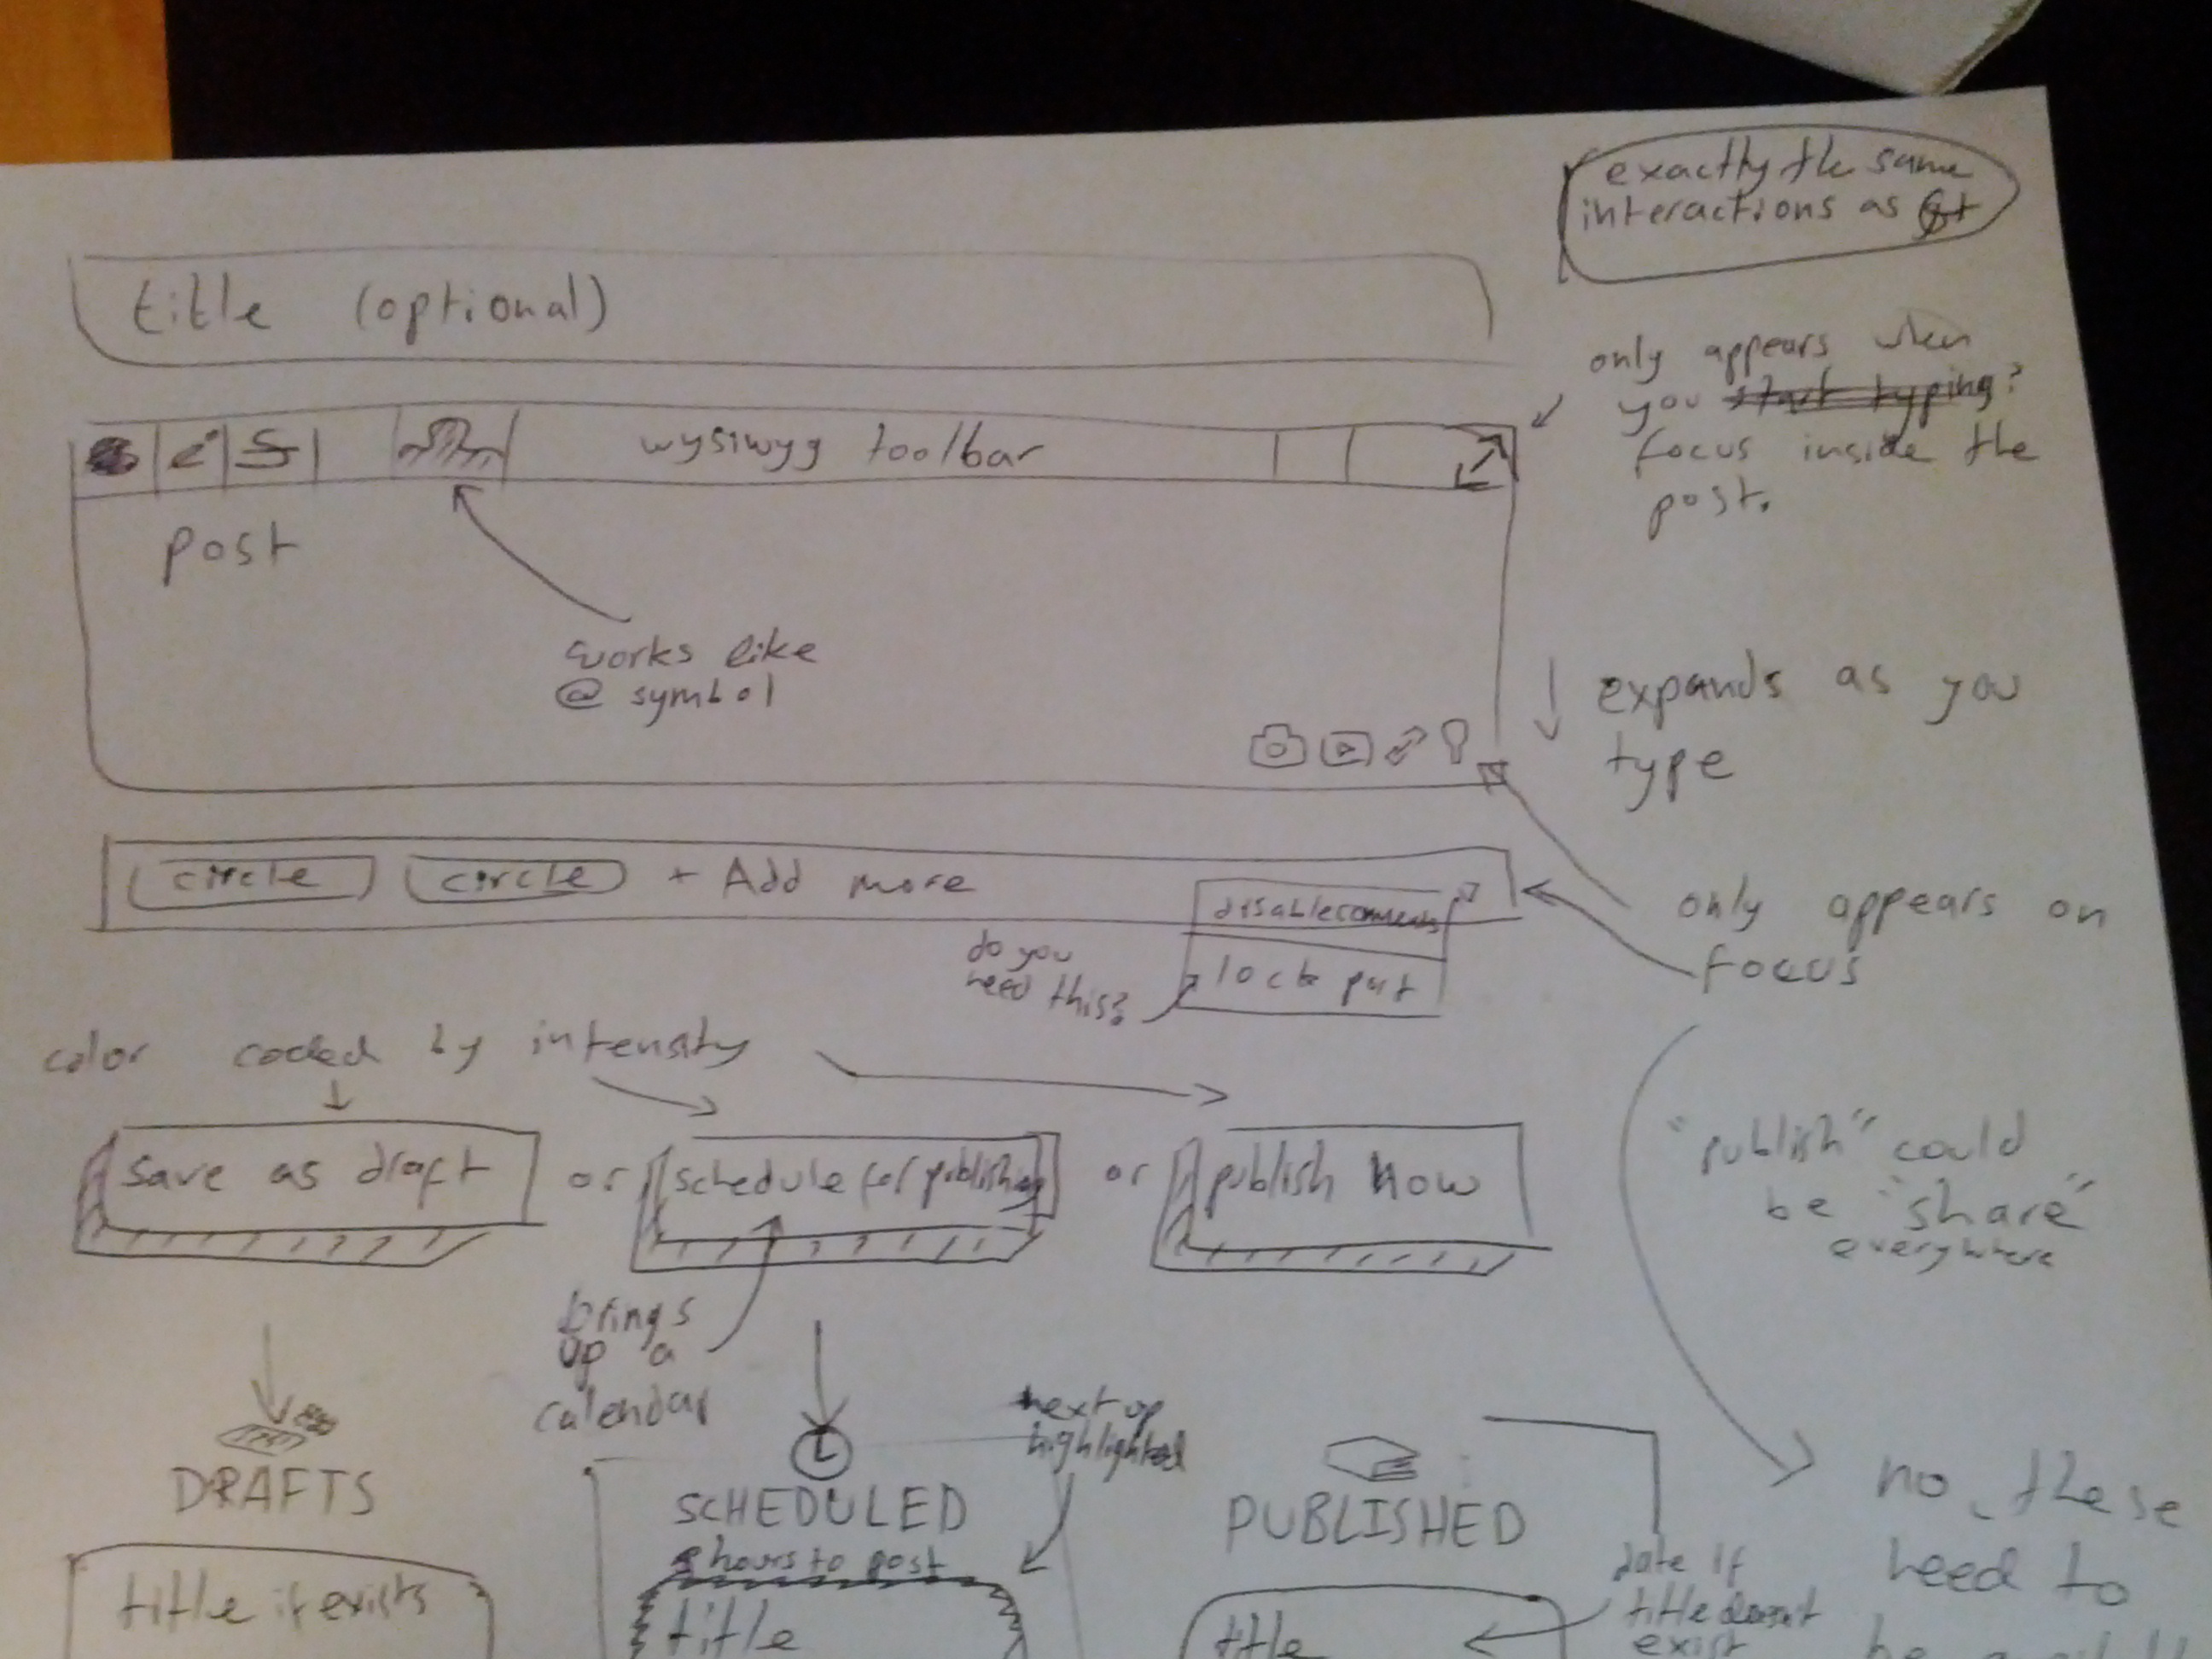 exactly the same
interactions as G+
title (optional)
only appears when
you start typing?
focus inside the
post.
i S
wysiwyg toolbar
post
works like
@ symbol
expands as you
type
circle circle + Add more
disable comments
lock post
do you
need this?
only appears on
focus
color coded by intensity
save as draft or schedule for publishing or publish now
"publish" could
be "share"
everywhere
brings
up a
calendar
next up
highlighted
DRAFTS
SCHEDULED
PUBLISHED
hours to post
title if exists
title
title
date if
title doesnt
exist
no, these
need to
be